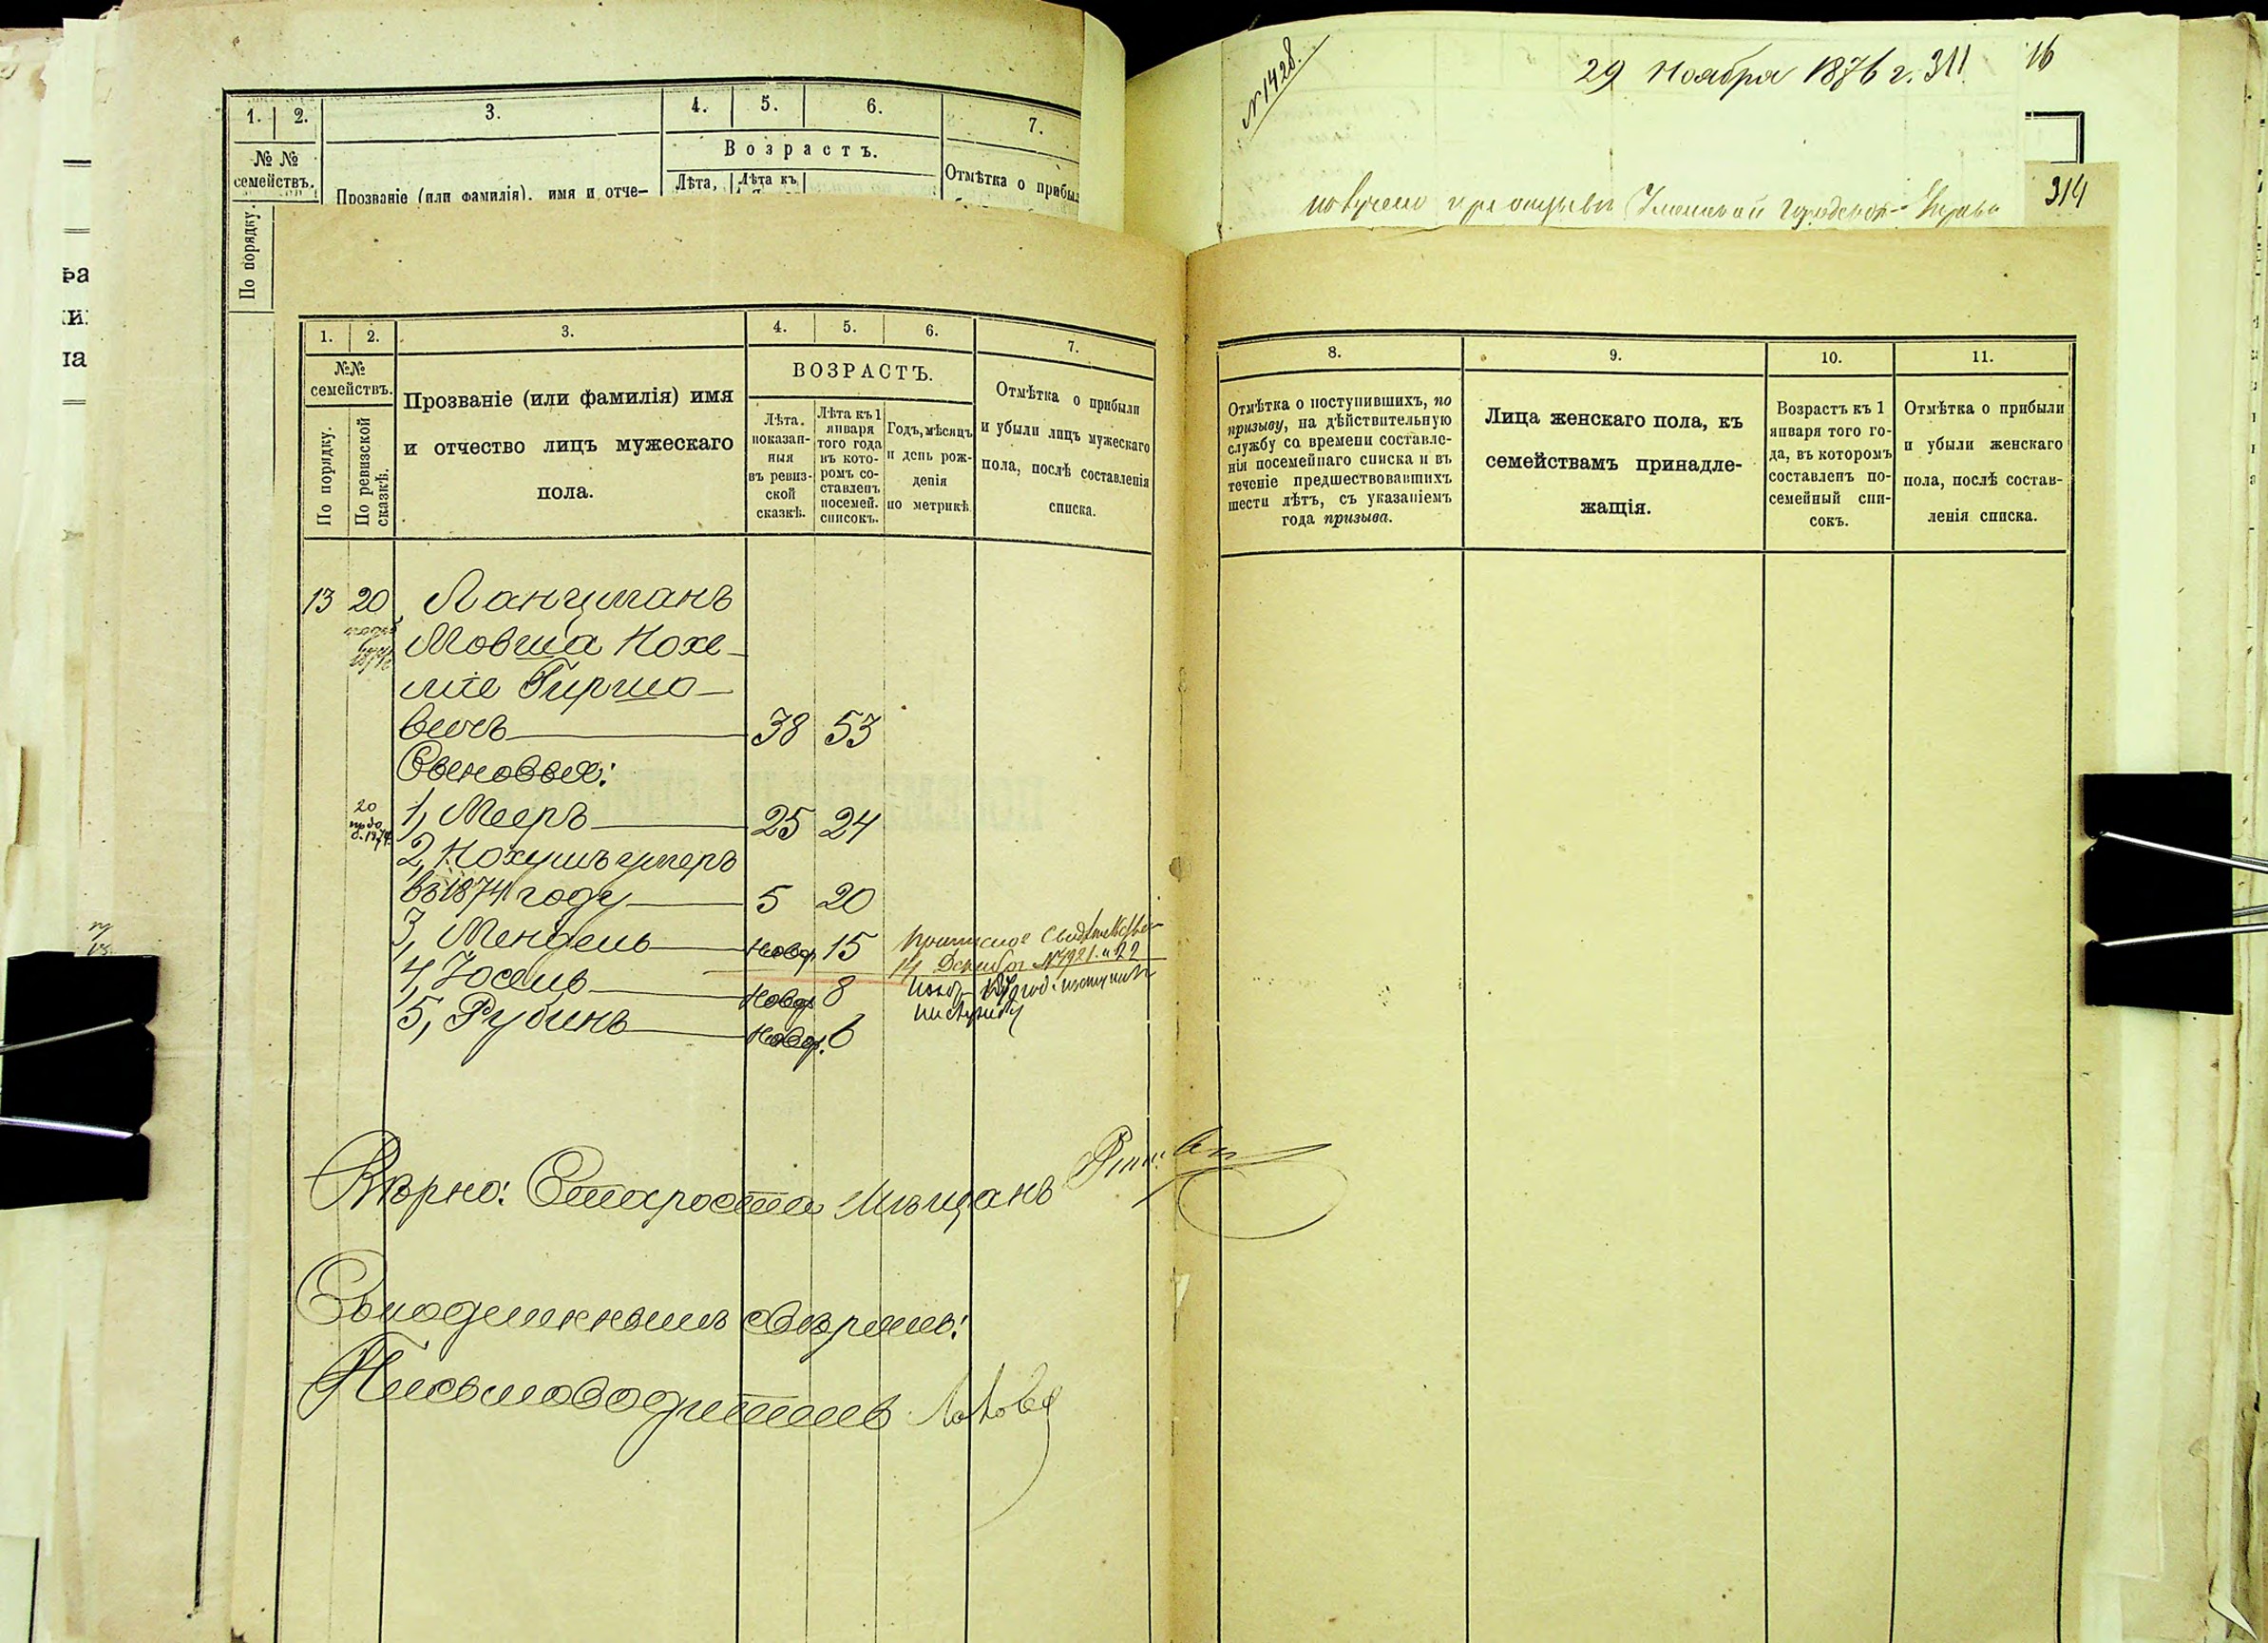 1.
2.
3.
4.
5.
6.
7.
№ №
семействъ.
По порядку.
Прозваніе (или фамилія), имя и отче-
Возрастъ.
Лѣта,
Лѣта къ
Отмѣтка о прибыл
№ 1428.
29 Ноября 1876 г. 311
16
314
Городской
1.
2.
3.
4.
5.
6.
7.
№№
семействъ.
По порядку.
По ревизской
сказкѣ.
Прозваніе (или фамилія) имя
и отчество лицъ мужескаго
пола.
ВОЗРАСТЪ.
Лѣта.
показан-
ныя
въ ревиз-
ской
сказкѣ.
Лѣта къ 1
января
того года
въ кото-
ромъ со-
ставленъ
посемей.
списокъ.
Годъ, мѣсяцъ
и день рож-
денія
по метрикѣ.
Отмѣтка о прибыли
и убыли лицъ мужескаго
пола, послѣ составленія
списка.
8.
9.
10.
11.
Отмѣтка о поступившихъ, по
призыву, на дѣйствительную
службу со времени составле-
нія посемейнаго списка и въ
теченіе предшествовавшихъ
шести лѣтъ, съ указаніемъ
года призыва.
Лица женскаго пола, къ
семействамъ принадле-
жащія.
Возрастъ къ 1
января того го-
да, въ которомъ
составленъ по-
семейный спи-
сокъ.
Отмѣтка о прибыли
и убыли женскаго
пола, послѣ состав-
ленія списка.
13 20 Ланцманъ
Мовша Нохе-
міе Гиршо-
вичъ 38 53
Сыновья:
20
1, Мееръ 25 24
2, Нохумъ умеръ
въ 1874 году 5 20
3, Мендель Новор. 15
4, Іосель Новор. 8
5, Рубинъ Новор. 6
Вѣрно: Староста Мѣщанъ
Съ подлиннымъ вѣрно:
Письмоводитель